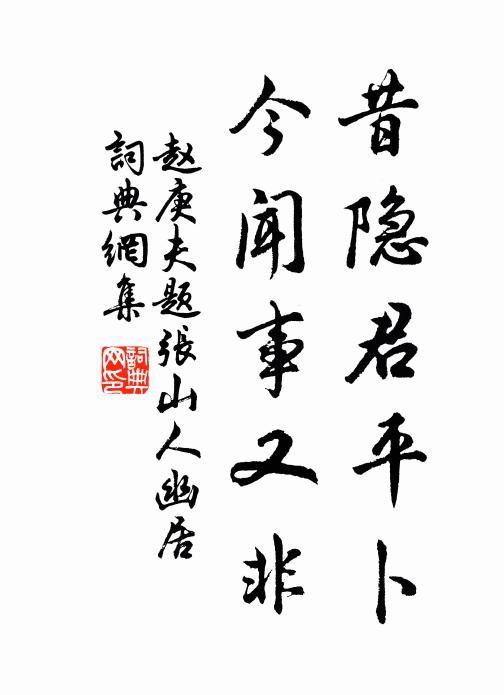 昔隐君平卜
今闻事又非
赵庚夫题張山人幽居
詞典網集
詞典
网印